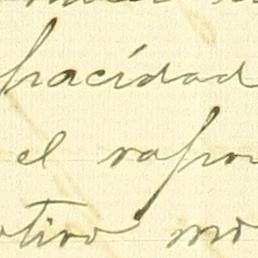 pacidad
el vapor
otivo mo